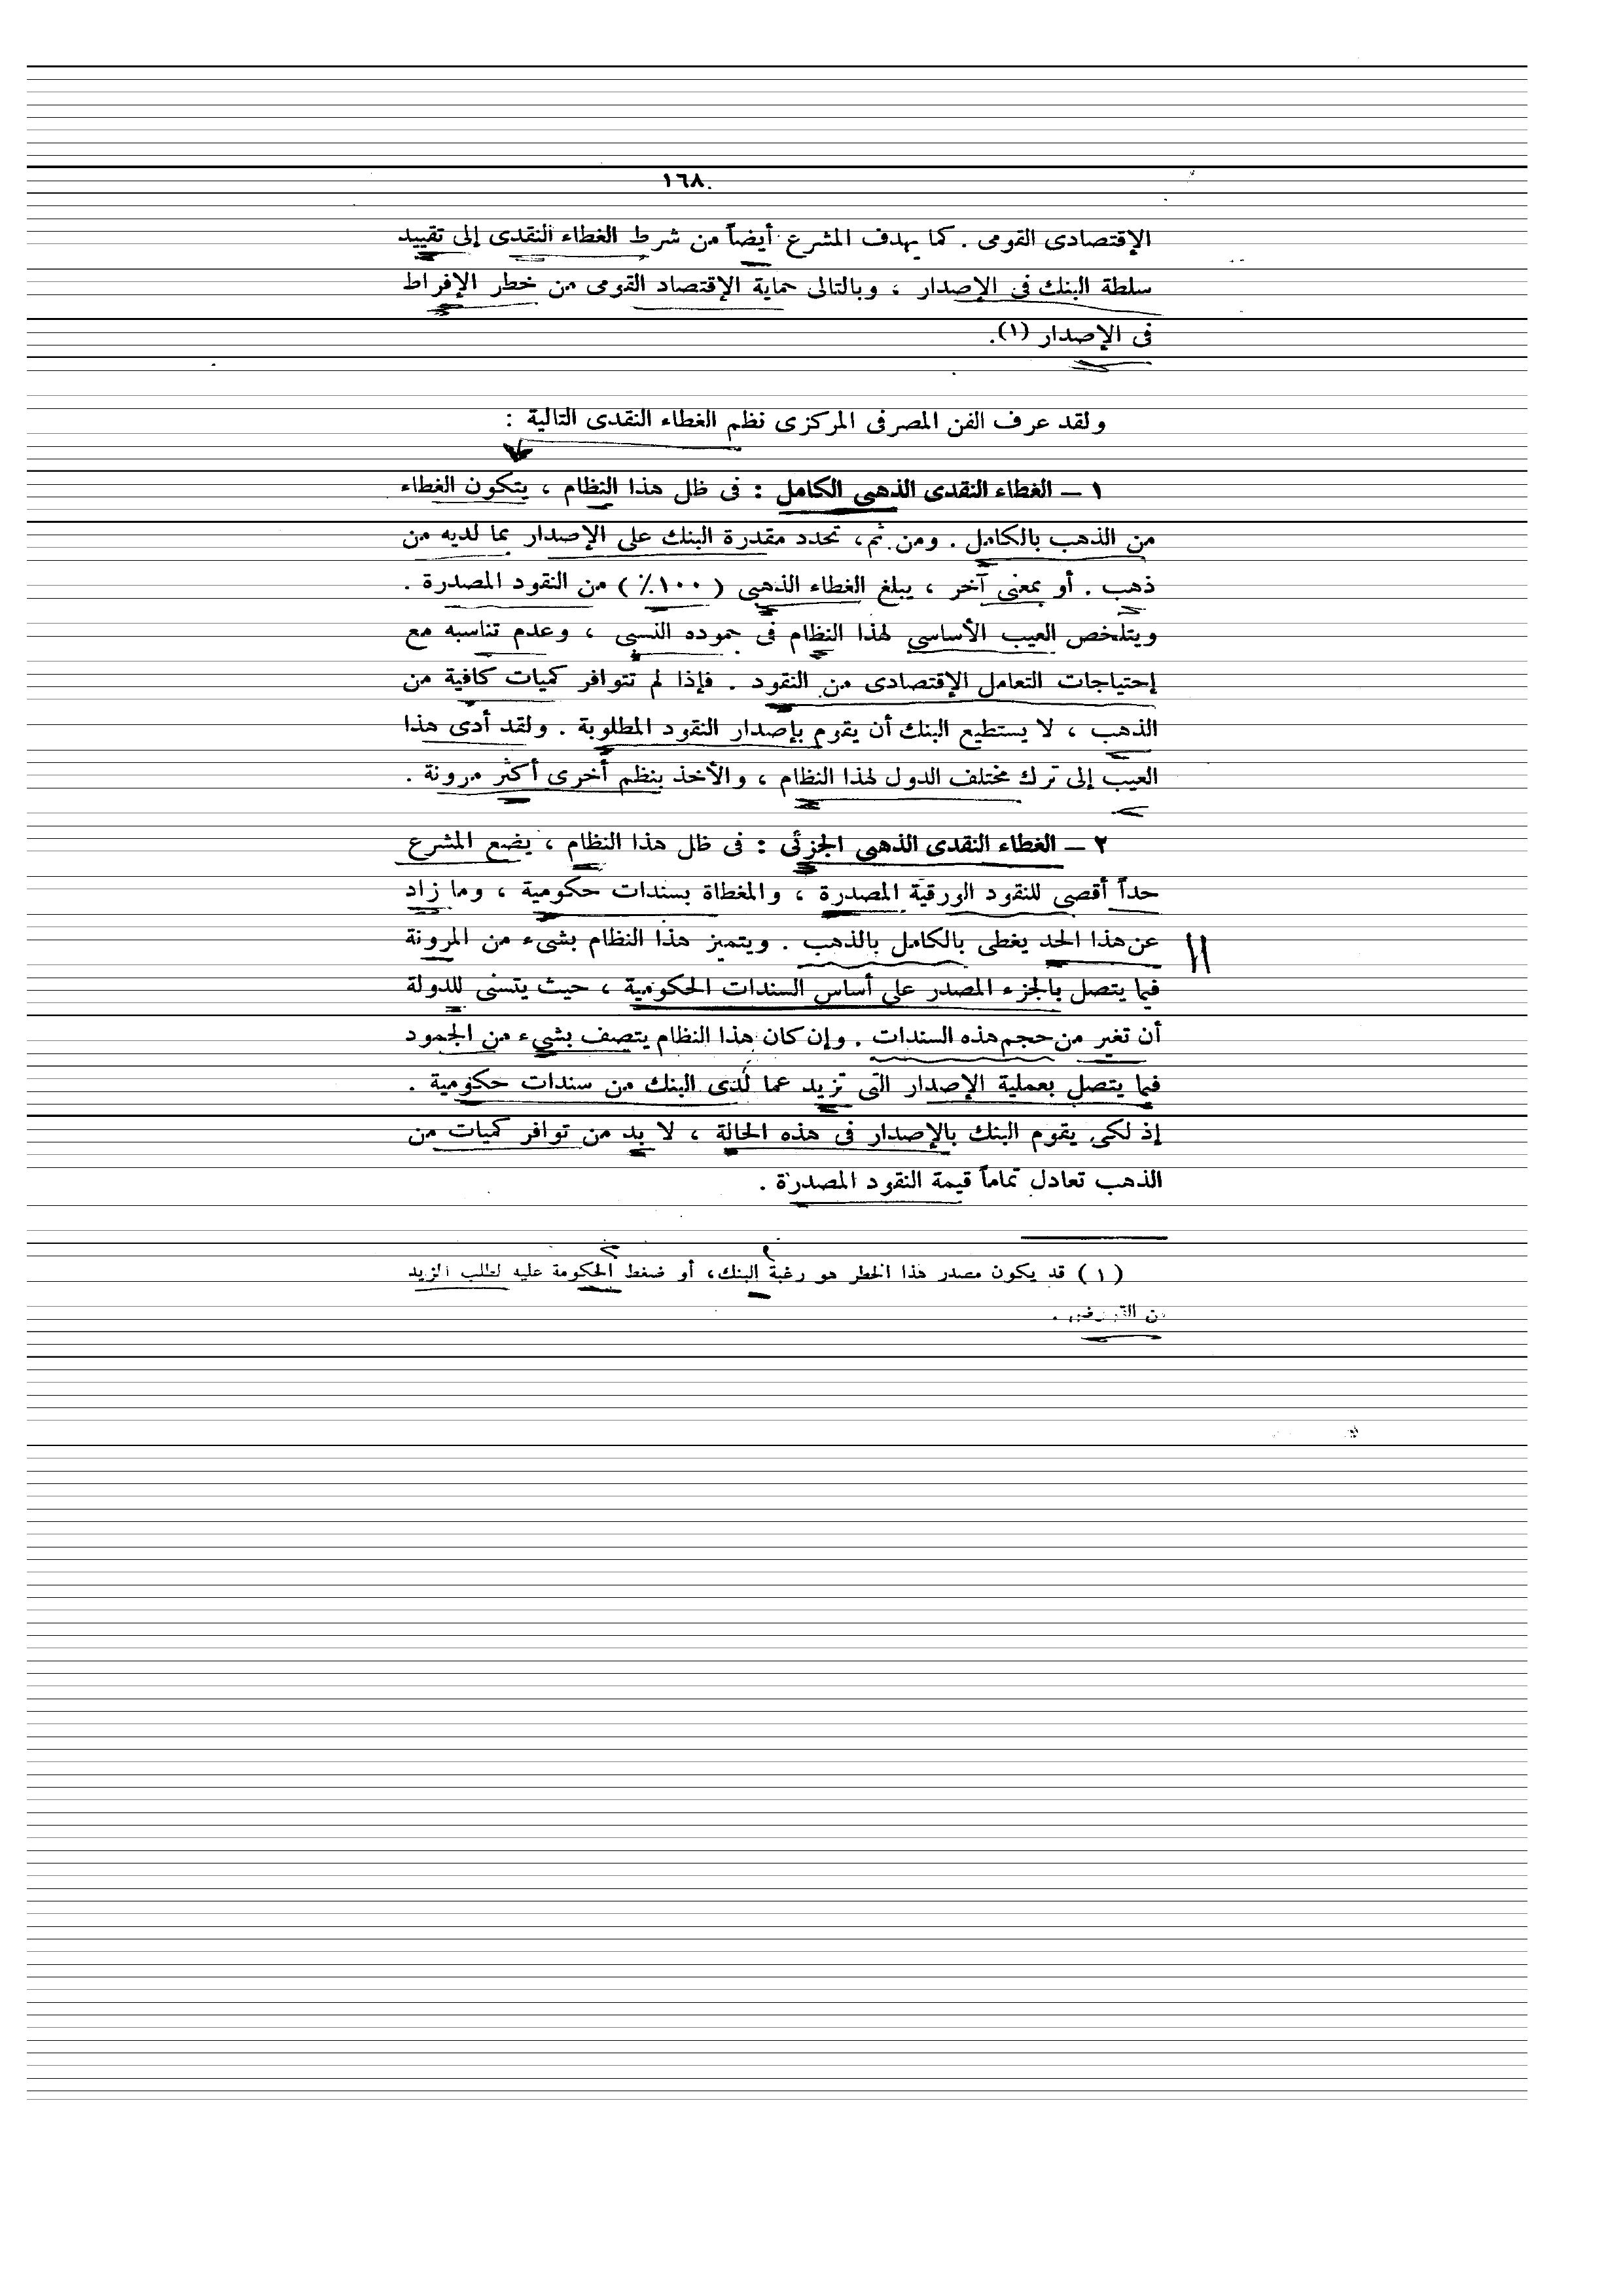 ١٦٨
الإقتصادى القومى . كما يهدف المشرع أيضاً من شرط الغطاء النقدى إلى تقييد
سلطة البنك فى الإصدار ، وبالتالى حماية الإقتصاد القومى من خطر الإفراط
فى الإصدار (١).
ولقد عرف الفن المصرفى المركزى نظم الغطاء النقدى التالية :
١ – الغطاء النقدى الذهبى الكامل : فى ظل هذا النظام ، يتكون الغطاء
من الذهب بالكامل . ومن ثم، تحدد مقدرة البنك على الإصدار بما لديه من
ذهب . أو بمعنى آخر ، يبلغ الغطاء الذهبى ( ١٠٠٪ ) من النقود المصدرة .
ويتلخص العيب الأساسى لهذا النظام فى جموده النسبى ، وعدم تناسبه مع
إحتياجات التعامل الإقتصادى من النقود . فإذا لم تتوافر كميات كافية من
الذهب ، لا يستطيع البنك أن يقوم بإصدار النقود المطلوبة . ولقد أدى هذا
العيب إلى ترك مختلف الدول لهذا النظام ، والأخذ بنظم أخرى أكثر مرونة .
٢ – الغطاء النقدى الذهبى الجزئى : فى ظل هذا النظام ، يضع المشرع
حداً أقصى للنقود الورقية المصدرة ، والمغطاة بسندات حكومية ، وما زاد
عن هذا الحد يغطى بالكامل بالذهب . ويتميز هذا النظام بشىء من المرونة
فيما يتصل بالجزء المصدر على أساس السندات الحكومية ، حيث يتسنى للدولة
أن تغير من حجم هذه السندات . وإن كان هذا النظام يتصف بشىء من الجمود
فيما يتصل بعملية الإصدار التى تزيد عما لدى البنك من سندات حكومية .
إذ لكى يقوم البنك بالإصدار فى هذه الحالة ، لا بد من توافر كميات من
الذهب تعادل تماماً قيمة النقود المصدرة .
(١) قد يكون مصدر هذا الخطر هو رغبة البنك، أو ضغط الحكومة عليه لطلب المزيد
من